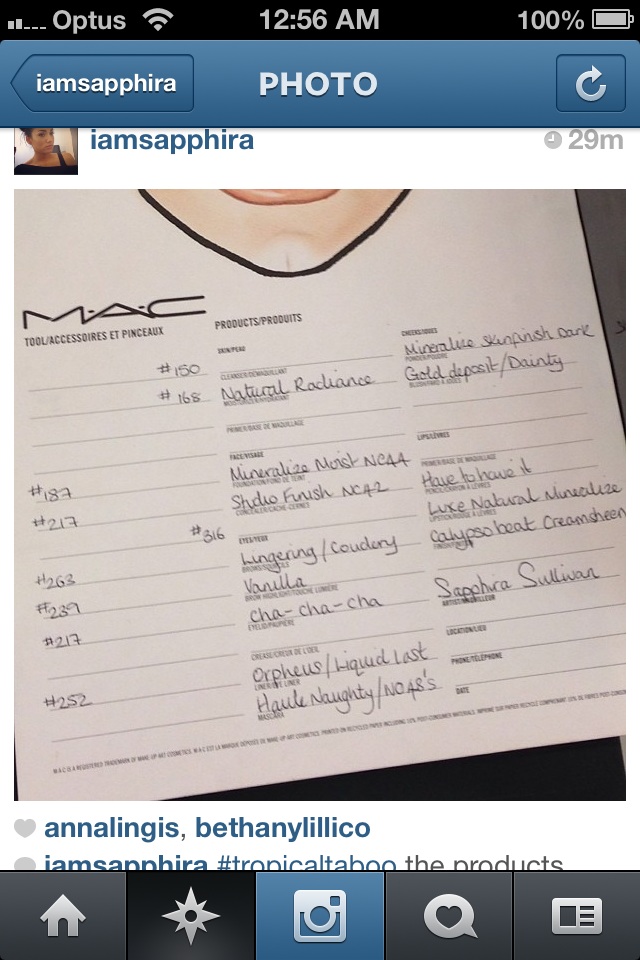 Optus 12:56 AM 100%
iamsapphira PHOTO
iamsapphira 29m
M·A·C
TOOL/ACCESSOIRES ET PINCEAUX
#150
#168
#187
#217
#316
#263
#239
#217
#252
PRODUCTS/PRODUITS
SKIN/PEAU
CLEANSER/DÉMAQUILLANT
Natural Radiance
MOISTURIZER/HYDRATANT
PRIMER/BASE DE MAQUILLAGE
FACE/VISAGE
Mineralize Moist NC44
FOUNDATION/FOND DE TEINT
Studio Finish NC42
CONCEALER/CACHE-CERNES
EYES/YEUX
Lingering/Coudery
BROWS/SOURCILS
Vanilla
BROW HIGHLIGHT/TOUCHE LUMIÈRE
cha-cha-cha
EYELID/PAUPIÈRE
CREASE/CREUX DE L'OEIL
Orpheus/Liquid last
LINER/EYE LINER
Haute Naughty/NO48's
MASCARA
CHEEKS/JOUES
Mineralize skinfinish Dark
POWDER/POUDRE
Gold deposit/Dainty
BLUSH/FARD À JOUES
LIPS/LÈVRES
PRIMER/BASE DE MAQUILLAGE
Have to have it
PENCIL/CRAYON À LÈVRES
Luxe Natural Minealize
LIPSTICK/ROUGE À LÈVRES
Calypso beat Creamsheen
Sapphira Sullivan
ARTIST/MAQUILLEUR
LOCATION/LIEU
PHONE/TÉLÉPHONE
DATE
M·A·C IS A REGISTERED TRADEMARK OF MAKE-UP ART COSMETICS. M·A·C EST LA MARQUE DÉPOSÉE DE MAKE-UP ART COSMETICS. PRINTED ON RECYCLED PAPER INCLUDING 10% POST-CONSUMER MATERIALS. IMPRIMÉ SUR PAPIER RECYCLÉ COMPRENANT 10% DE FIBRES POST-CONS
annalingis, bethanylillico
iamsapphira #tropicaltaboo the products